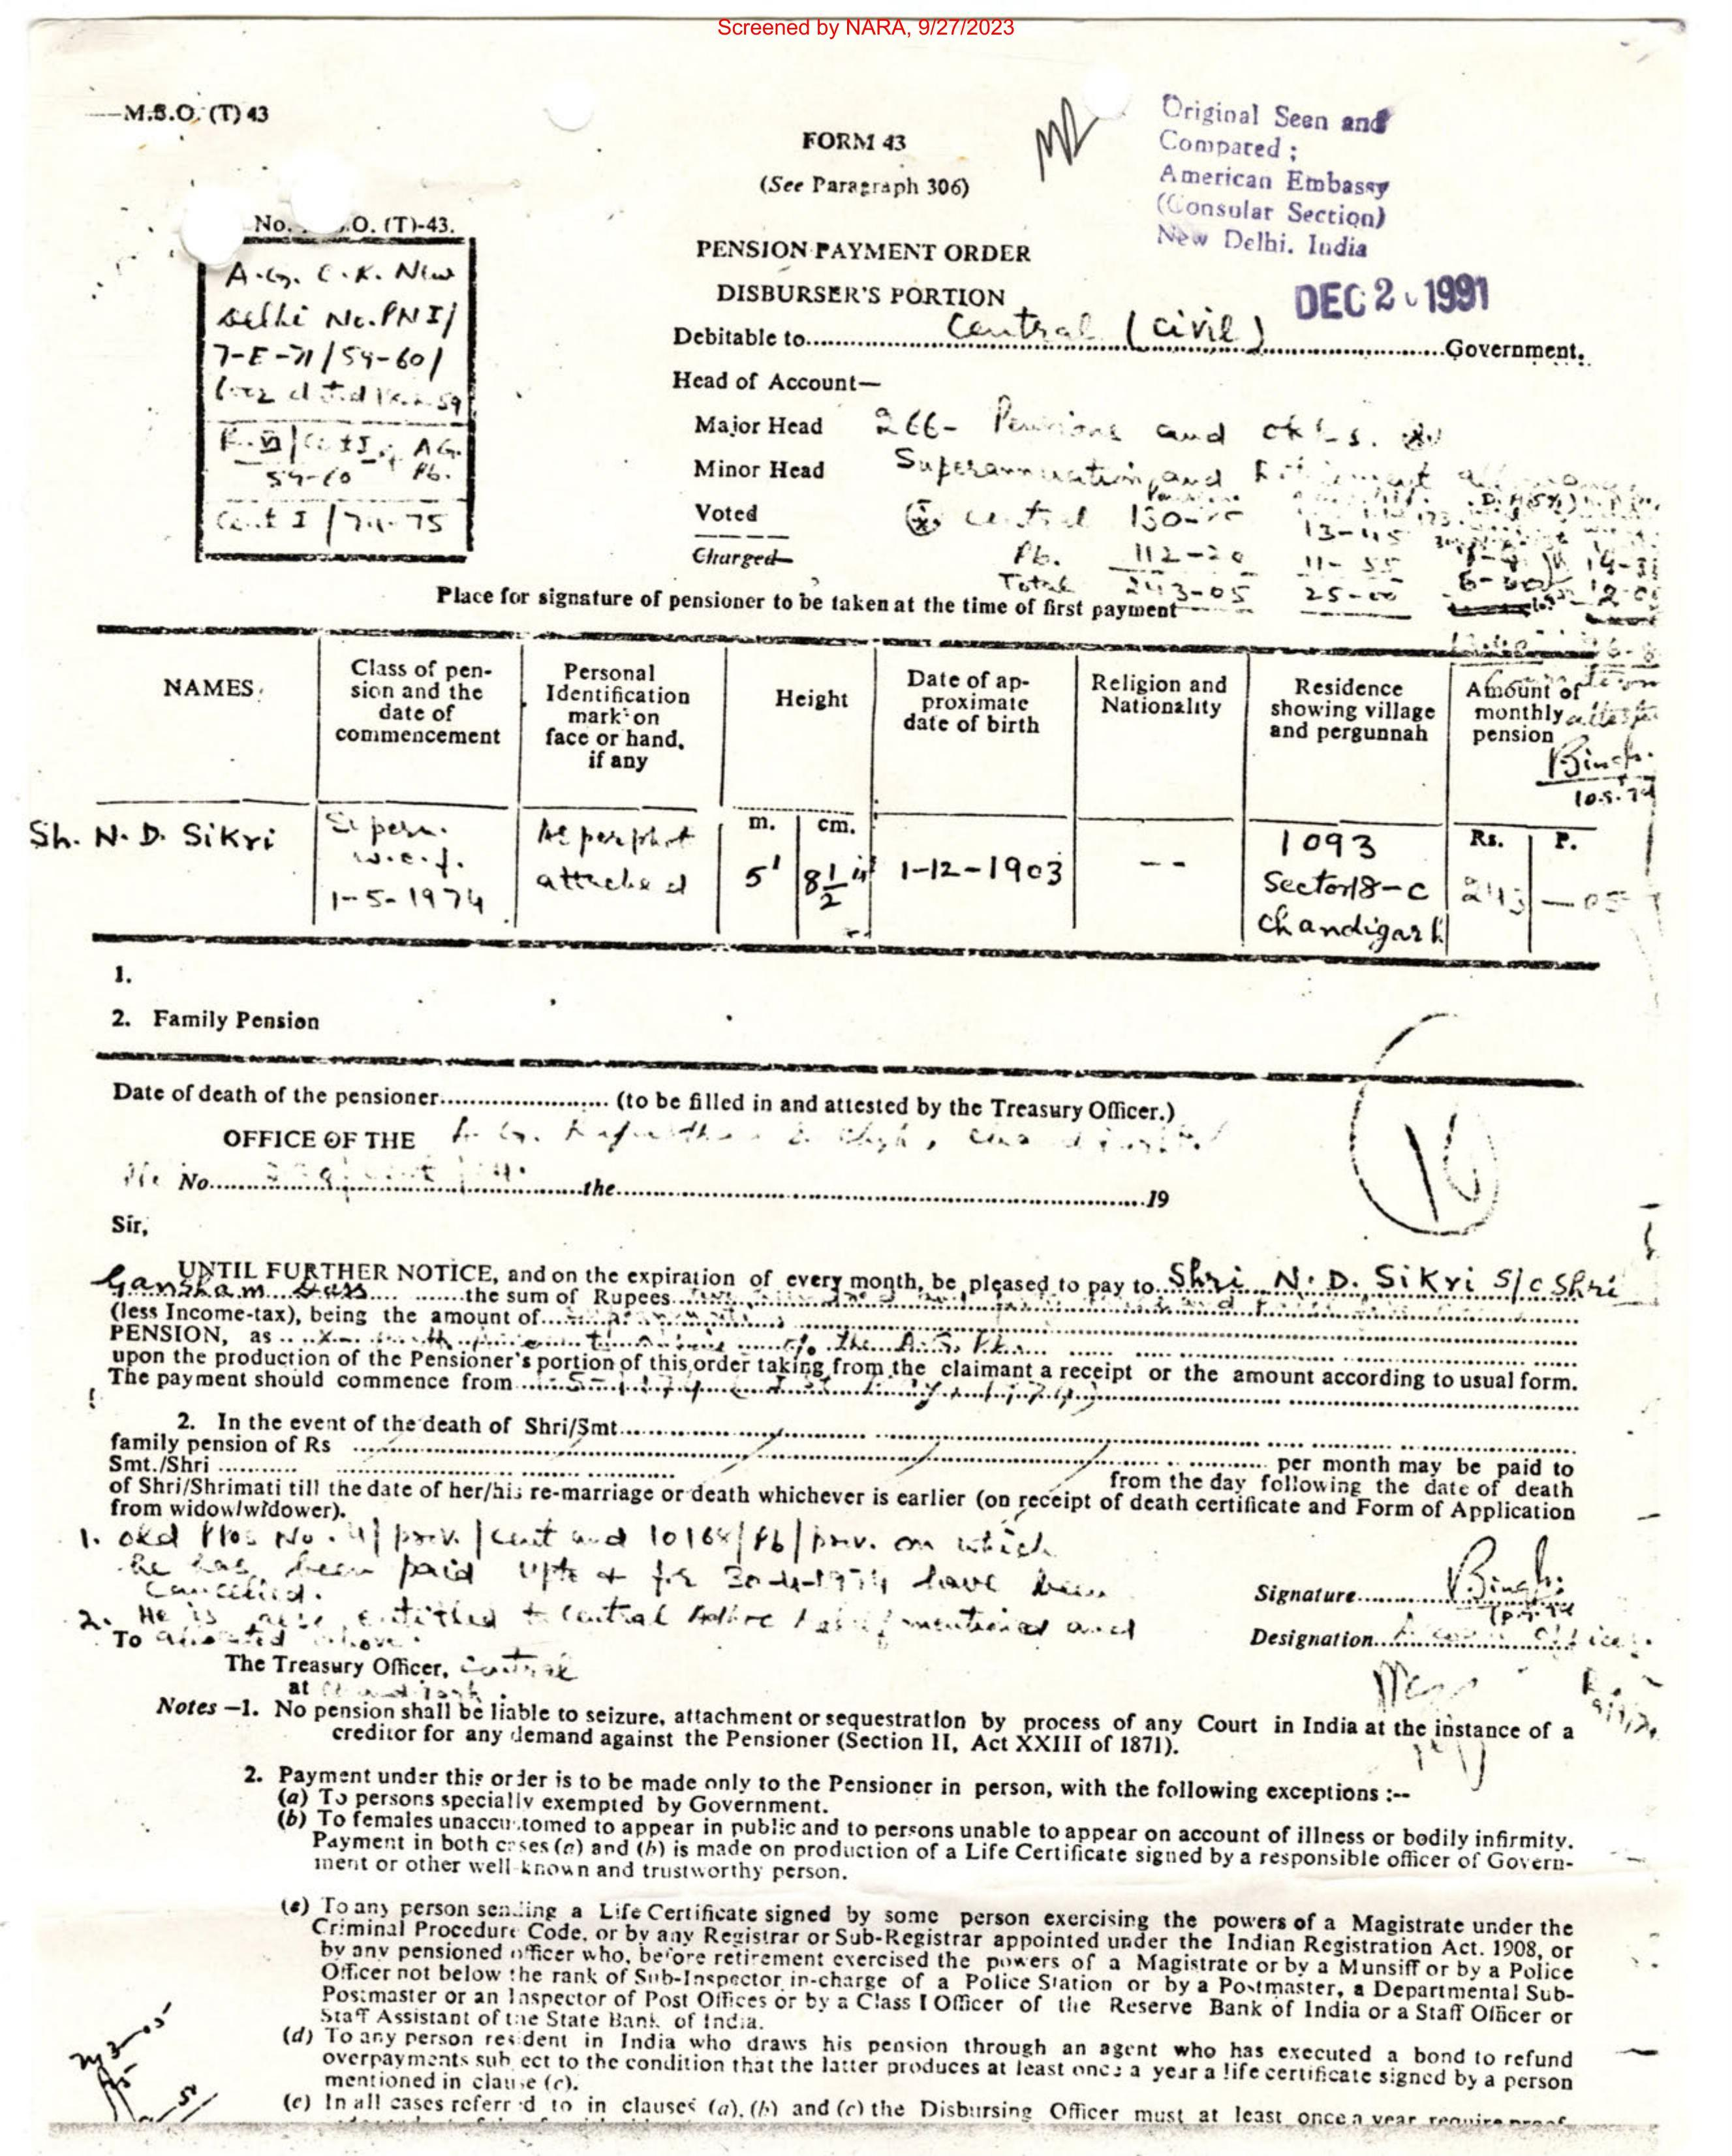 Screened by NARA, 9/27/2023
M.S.O. (T) 43
FORM 43
(See Paragraph 306)
Original Seen and
Compared ;
American Embassy
(Consular Section)
New Delhi. India
DEC 2 1991
No. O. (T)-43.
A.G. C.R. New
Delhi No. PN I/
7-E-71/59-60/
59-60 Pb.
Cent I / 74-75
PENSION PAYMENT ORDER
DISBURSER'S PORTION
Debitable to Central (Civil) Government.
Head of Account—
Major Head 266- Pensions and
Minor Head Superannuation and
Voted Central
Charged Pb. 112-20 11-55
Total 243-05 25-00
Place for signature of pensioner to be taken at the time of first payment
NAMES
Class of pen-
sion and the
date of
commencement
Personal
Identification
mark on
face or hand,
if any
Height
Date of ap-
proximate
date of birth
Religion and
Nationality
Residence
showing village
and pergunnah
Amount of
monthly
pension
m. cm.
Rs. P.
Sh. N. D. Sikri
w.e.f.
1-5-1974
As per phot
attached
5' 8½"
1-12-1903
--
1093
Sector 18-C
Chandigarh
243—05
1.
2. Family Pension
Date of death of the pensioner (to be filled in and attested by the Treasury Officer.)
OFFICE OF THE
No. the 19
Sir,
UNTIL FURTHER NOTICE, and on the expiration of every month, be pleased to pay to Shri N. D. Sikri S/o Shri
Gansham Dass the sum of Rupees
(less Income-tax), being the amount of
PENSION, as the A.G. Pb.
upon the production of the Pensioner's portion of this order taking from the claimant a receipt or the amount according to usual form.
The payment should commence from
2. In the event of the death of Shri/Smt.
family pension of Rs
per month may be paid to
Smt./Shri from the day following the date of death
of Shri/Shrimati till the date of her/his re-marriage or death whichever is earlier (on receipt of death certificate and Form of Application
from widow/widower).
1. Old PPOs No. 4/prov./Cent and 10164/Pb/prov. on which
he has been paid upto & for 30-4-1974 have been
cancelled.
2. He is also entitled to Central Adhoc Relief mentioned and
Signature
Designation
To
The Treasury Officer, Central
at
Notes —1. No pension shall be liable to seizure, attachment or sequestration by process of any Court in India at the instance of a
creditor for any demand against the Pensioner (Section II, Act XXIII of 1871).
2. Payment under this order is to be made only to the Pensioner in person, with the following exceptions :--
(a) To persons specially exempted by Government.
(b) To females unaccustomed to appear in public and to persons unable to appear on account of illness or bodily infirmity.
Payment in both cases (a) and (b) is made on production of a Life Certificate signed by a responsible officer of Govern-
ment or other well-known and trustworthy person.
(c) To any person sending a Life Certificate signed by some person exercising the powers of a Magistrate under the
Criminal Procedure Code, or by any Registrar or Sub-Registrar appointed under the Indian Registration Act. 1908, or
by any pensioned officer who, before retirement exercised the powers of a Magistrate or by a Munsiff or by a Police
Officer not below the rank of Sub-Inspector in-charge of a Police Station or by a Postmaster, a Departmental Sub-
Postmaster or an Inspector of Post Offices or by a Class I Officer of the Reserve Bank of India or a Staff Officer or
Staff Assistant of the State Bank of India.
(d) To any person resident in India who draws his pension through an agent who has executed a bond to refund
overpayments subject to the condition that the latter produces at least once a year a life certificate signed by a person
mentioned in clause (c).
(e) In all cases referred to in clauses (a), (b) and (c) the Disbursing Officer must at least once a year require proof